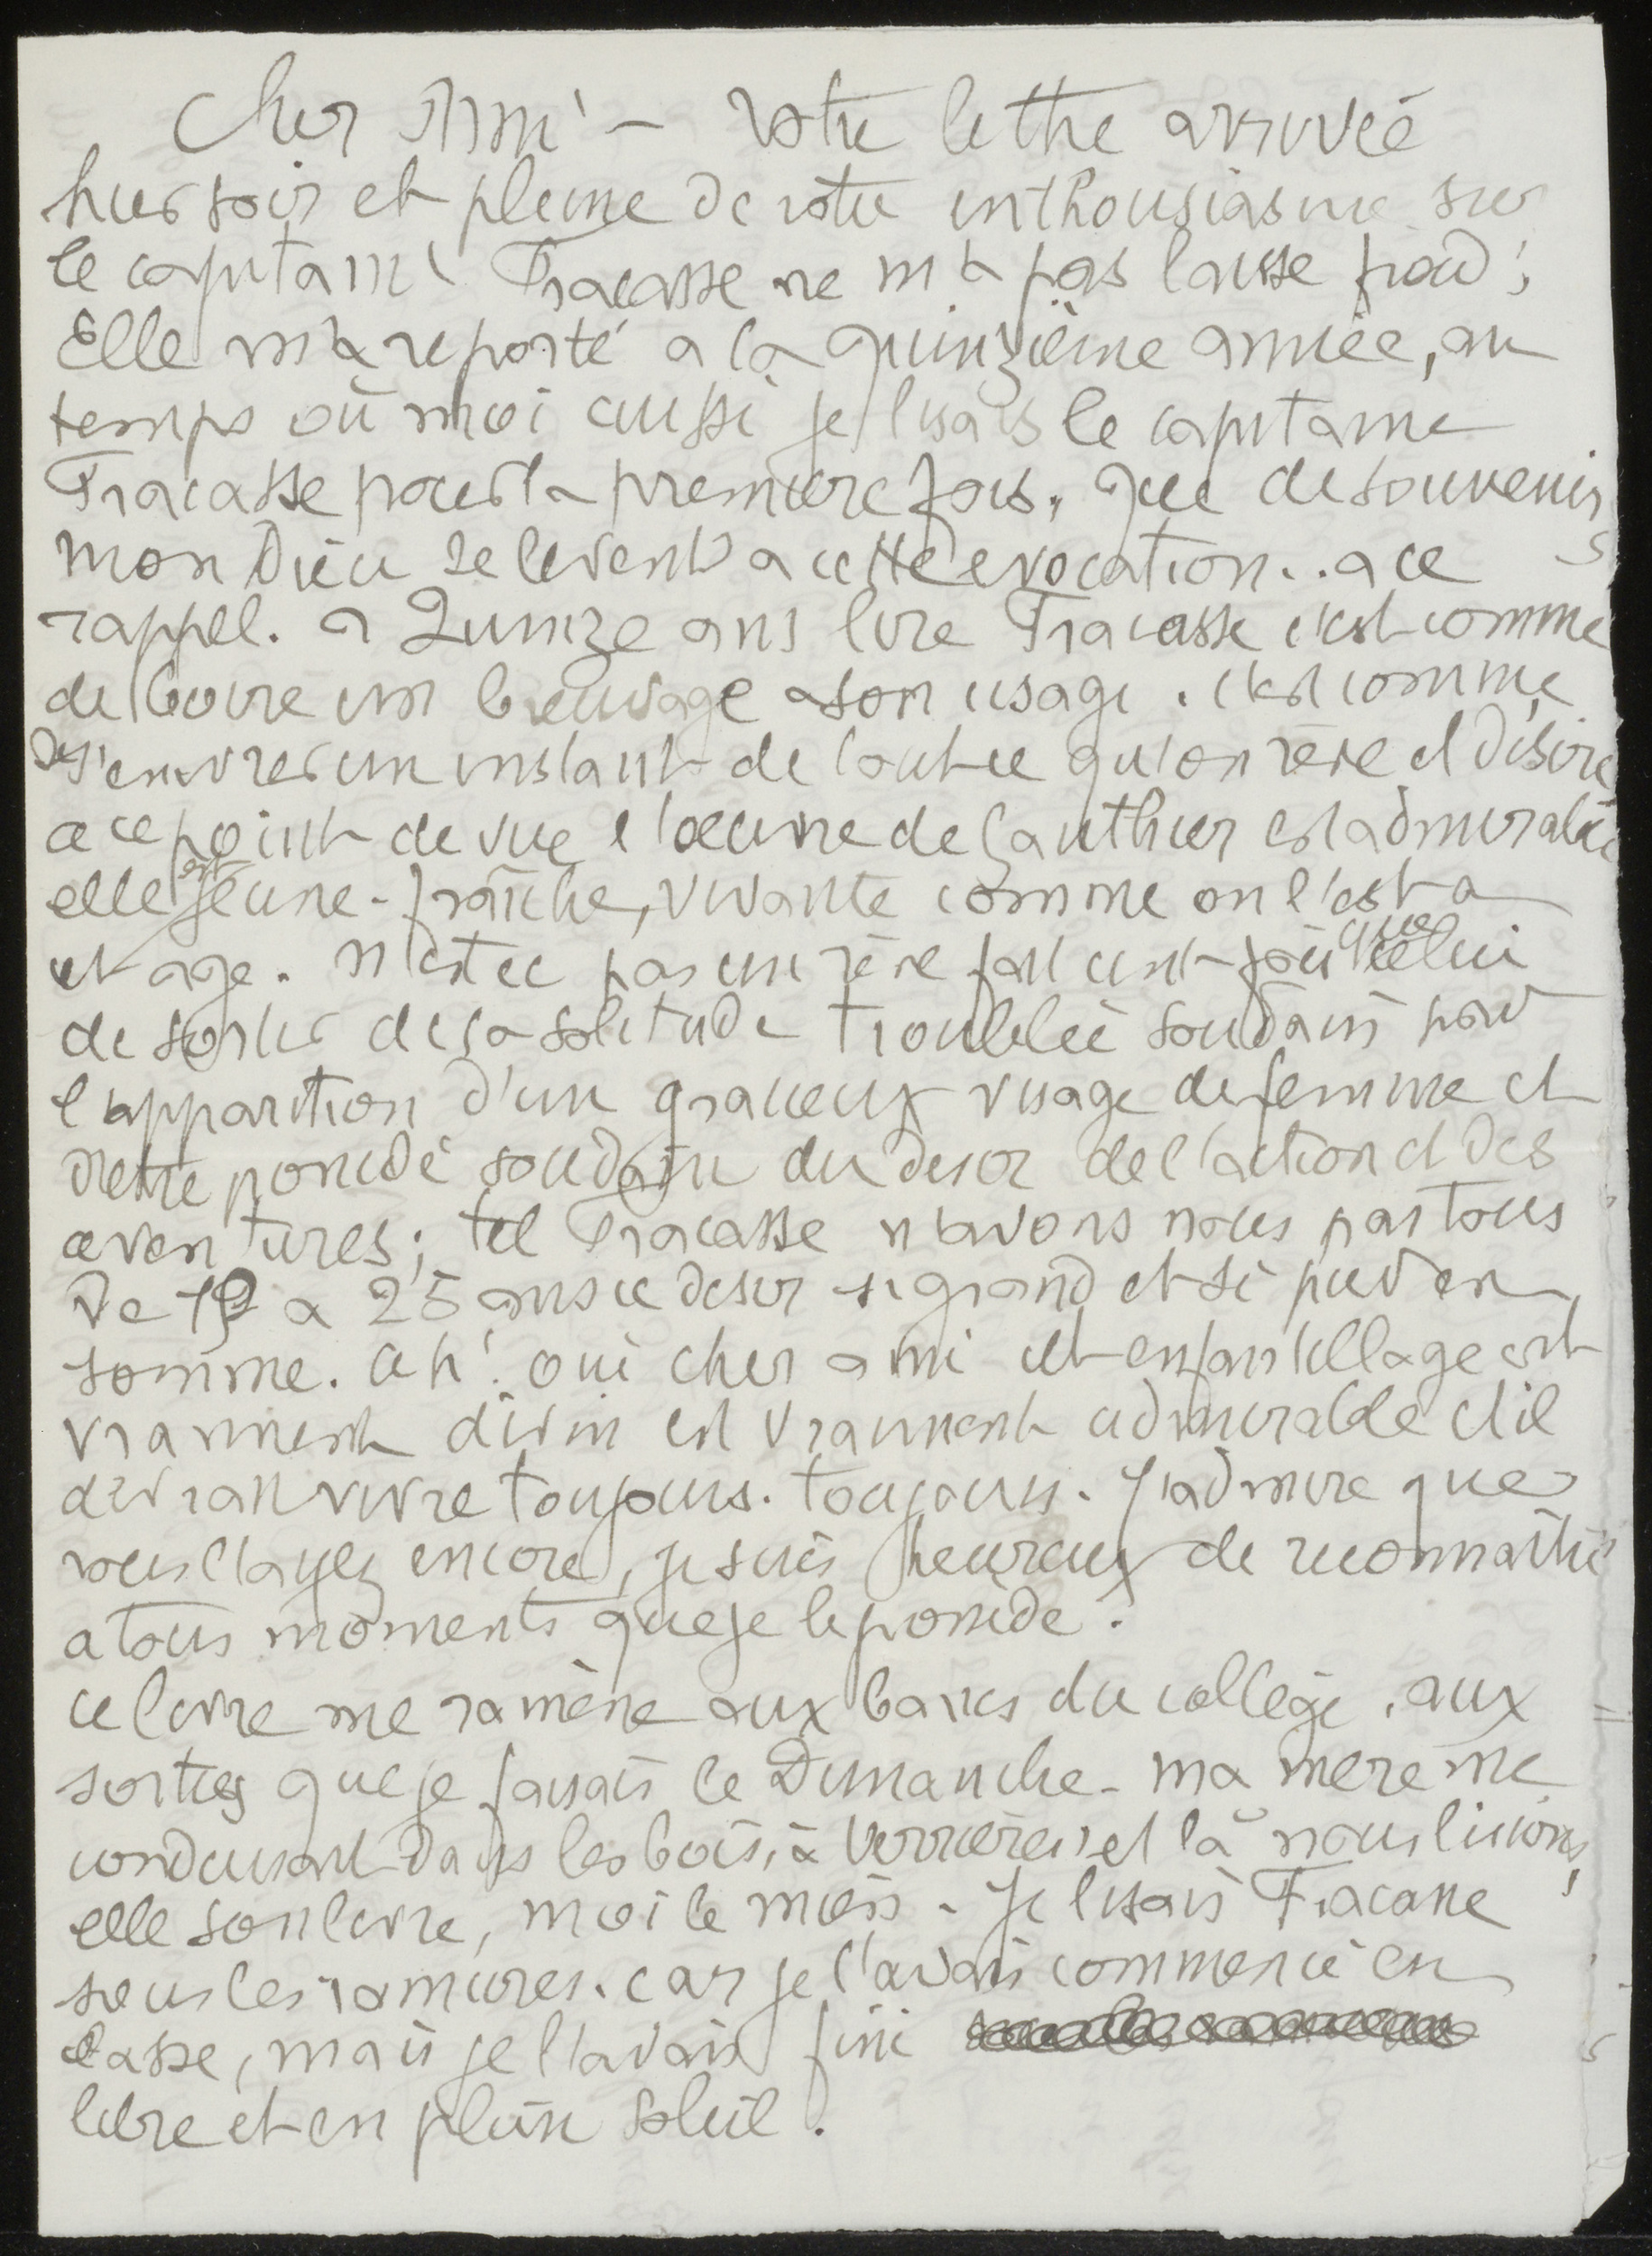 Cher Ami – votre lettre arrivée
hier soir et pleine de votre enthousiasme sur
le capitaine Fracasse ne m'a pas laissé froid ;
Elle m'a reporté a la quinzième année, au
temps où moi aussi je lisais le capitaine
Fracasse pour la premiere fois. Que de souvenirs
mon Dieu se levent a cette evocation.. a ce
rappel. a Quinze ans lire Fracasse c'est comme
de boire un breuvage a son usage. c'est comme
de s'enivrer un instant de tout ce qu'on rève et désire
a ce point de vue l'œuvre de Gauthier est admirable
elle est jeune - fraîche, vivante comme on l'est a
cet age. N'est ce pas un rève fait cent fois que celui
de sortir de sa solitude troublée soudain par
l'apparition d'un gracieux visage de femme et
d'etre possédé soudain du desir de l'action et des
aventures ; tel Fracasse n'avons nous pas tous
De 19 a 25 ans ce desir si grand et si pur en
somme. ah ! oui cher ami cet enfantillage est
vraiment divin est vraiment admirable et il
devrait vivre toujours. toujours. J'admire que
vous l'ayez encore, je suis heureux de reconnaître
a tous moments que je le possède.
ce livre me ramène aux bancs du collège. aux
sorties que je faisais le Dimanche - ma mere me
conduisait dans les bois, à Verrières et là nous lisions,
elle son livre, moi le mien - Je lisais Fracasse
sous les ramures. car je l'avais commencé en
classe, mais je l'avais fini
libre et en plein soleil.